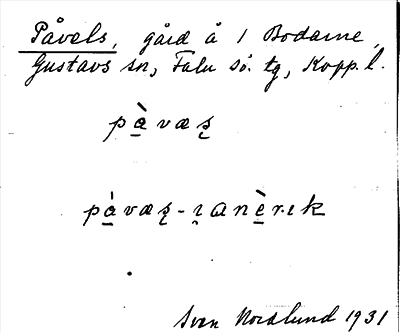 Påvels, gård å 1 Bodarne,
Gustavs sn, Falu sö. tg, Kopp. l.
pàvæs̨
pàvæs̨-ı̨anèrık
Sven Nordlund 1931